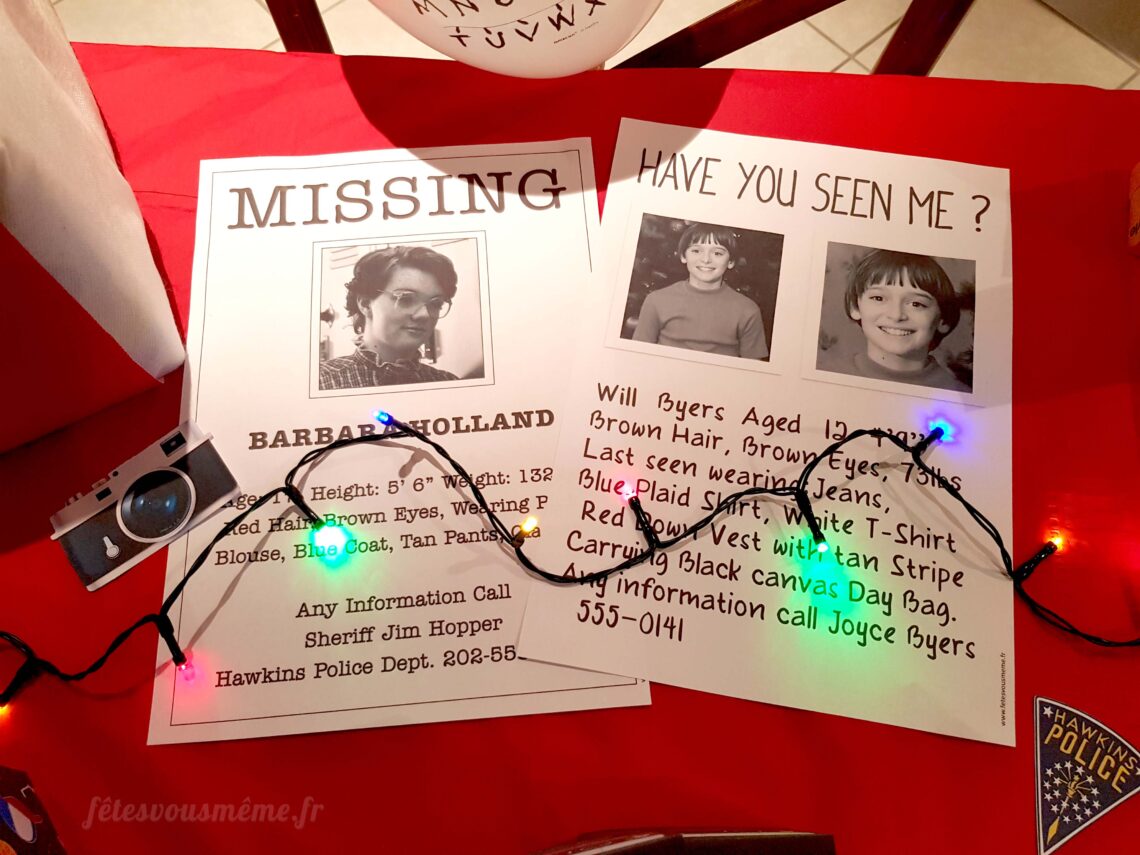 MN
TUVWX
MISSING
BARBARA HOLLAND
Height: 5' 6" Weight: 132
Red Hair, Brown Eyes, Wearing P
Blouse, Blue Coat, Tan Pants,
Any Information Call
Sheriff Jim Hopper
Hawkins Police Dept. 202-55
HAVE YOU SEEN ME ?
Will Byers Aged 12 4'9"
Brown Hair, Brown Eyes, 73lbs
Last seen wearing Jeans,
Blue Plaid Shirt, White T-Shirt
Red Down Vest with tan Stripe
Carrying Black canvas Day Bag.
Any information call Joyce Byers
555-0141
www.fetesvousmeme.fr
HAWKINS
POLICE
fêtesvousmême.fr